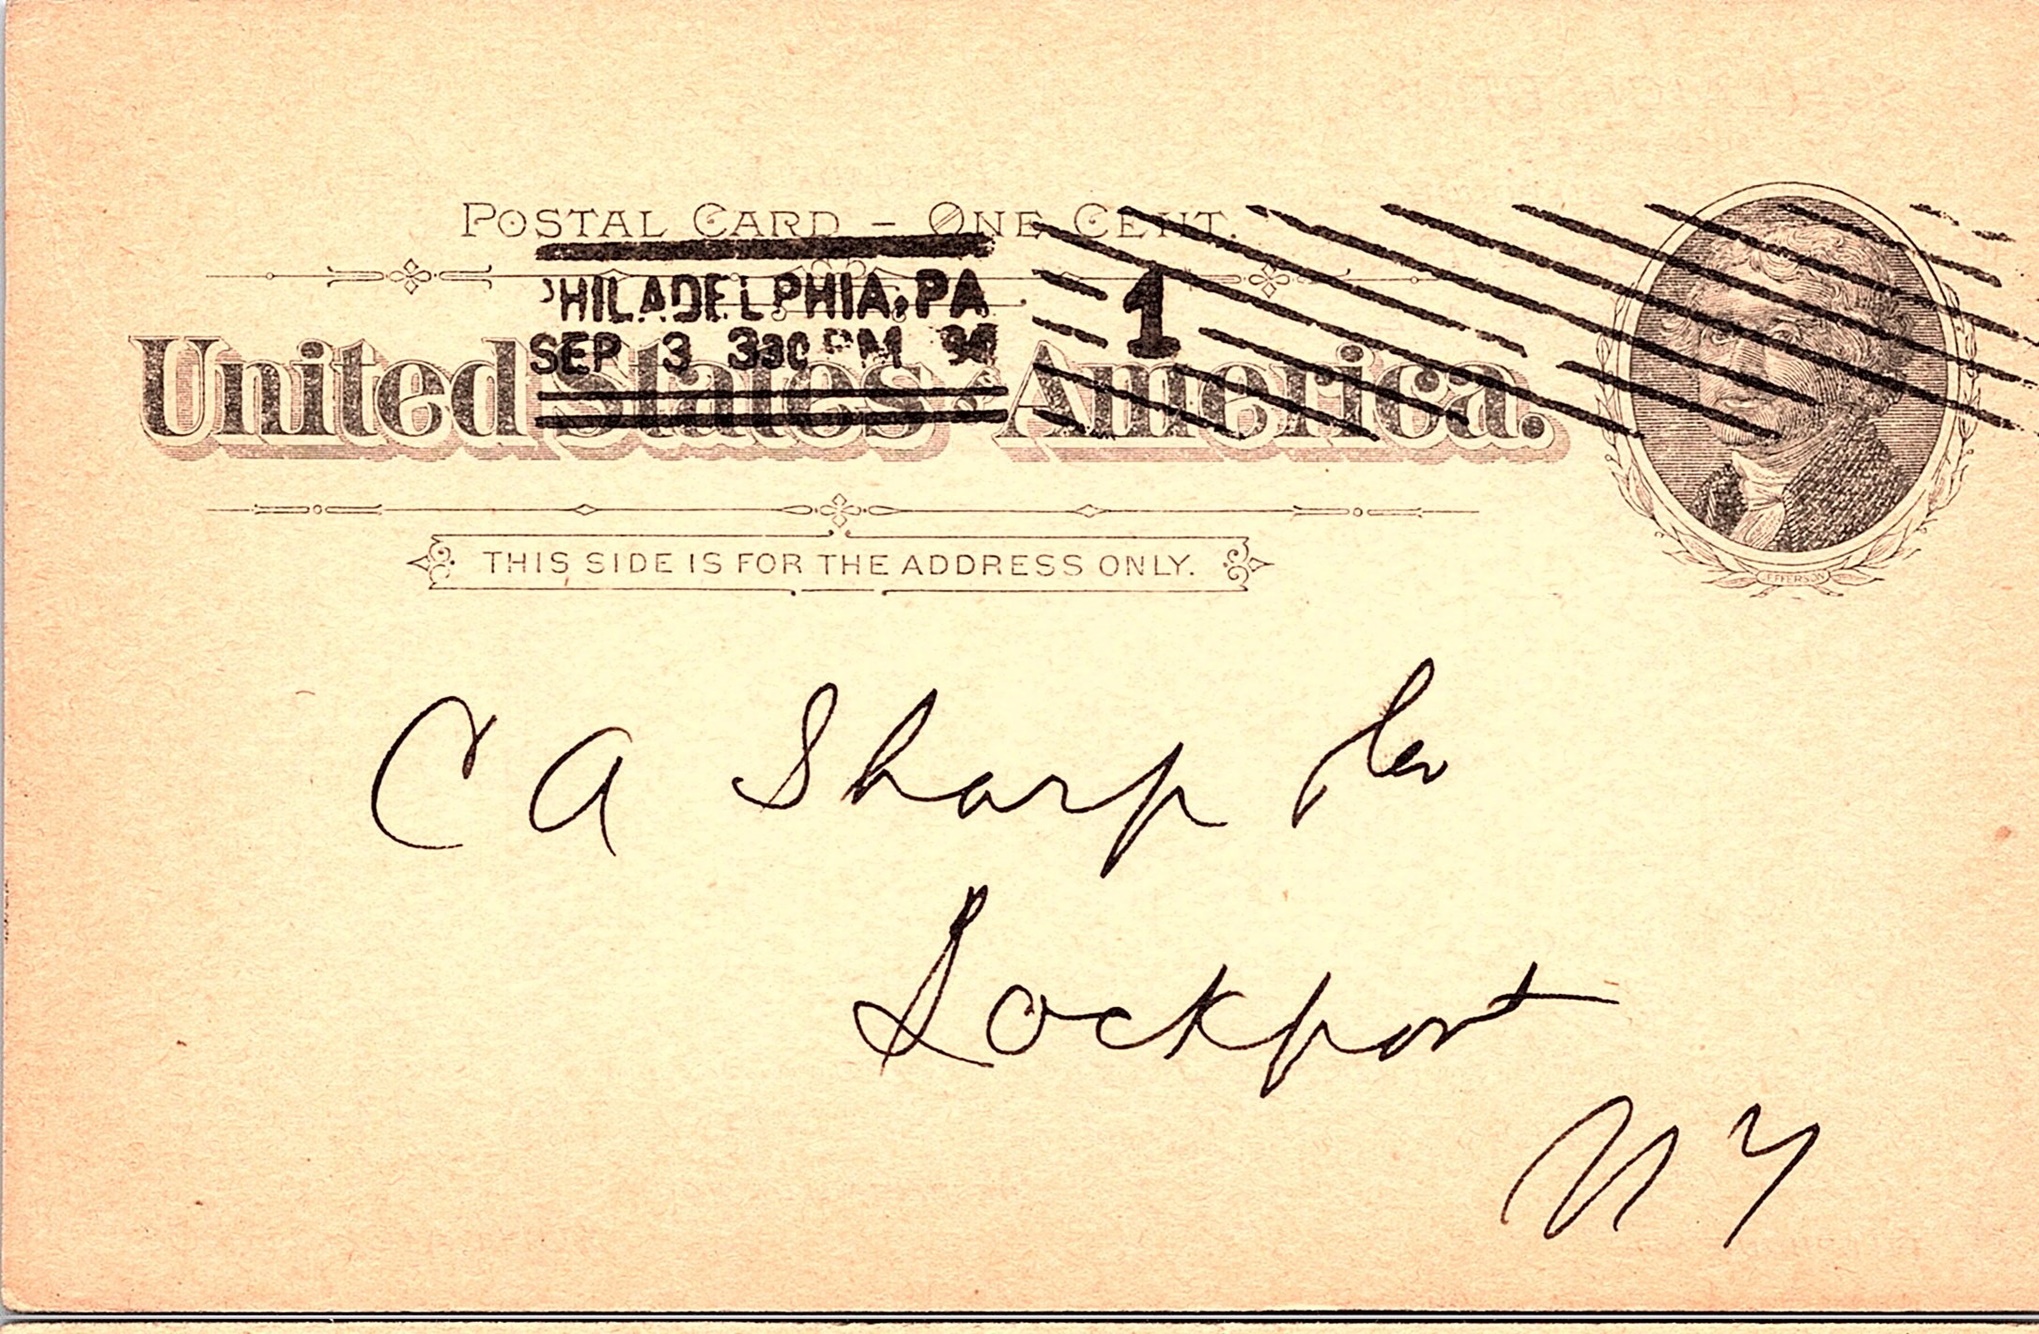 POSTAL CARD – ONE CENT.
PHILADELPHIA, PA
SEP 3 330 PM
1
United States of America.
JEFFERSON
THIS SIDE IS FOR THE ADDRESS ONLY.
C A Sharp
Lockport
N Y